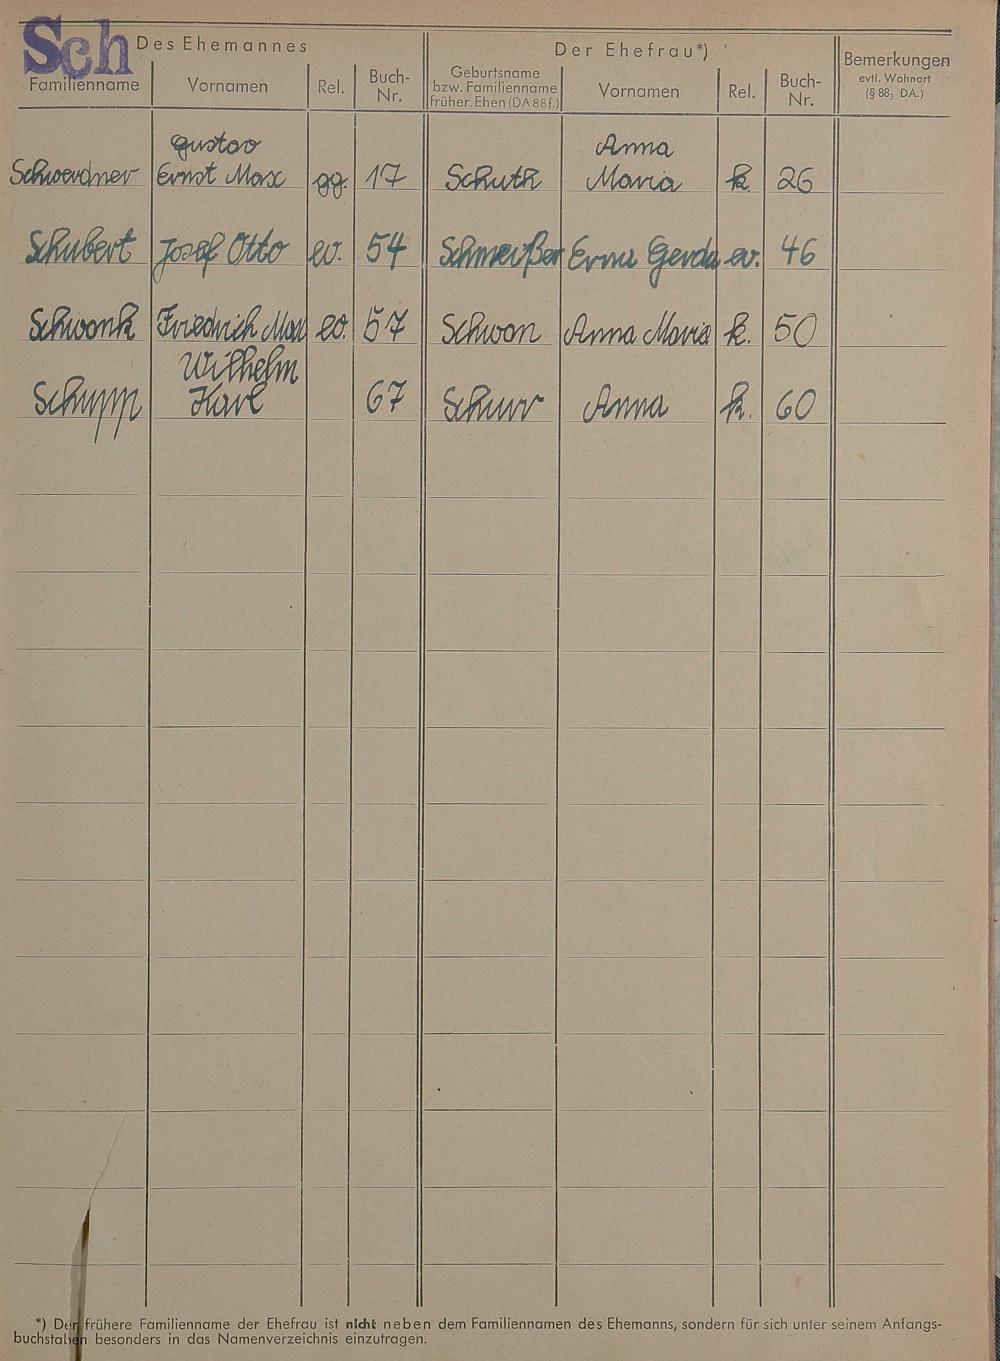 Sch
Des Ehemannes
Der Ehefrau*)
Bemerkungen
evtl. Wohnort
(§ 88₃ DA.)
Familienname
Vornamen
Rel.
Buch-
Nr.
Geburtsname
bzw. Familienname
früher. Ehen (DA 88 f.)
Vornamen
Rel.
Buch-
Nr.
Gustav Anna
Schwerdner Ernst Max gg. 17 Schuth Maria k. 26
Schubert Josef Otto ev. 54 Schmeißer Erna Gerda ev. 46
Schwonk Friedrich Max ev. 57 Schwan Anna Maria k. 50
Wilhelm
Schupp Karl 67 Schurr Anna k. 60
*) Der frühere Familienname der Ehefrau ist nicht neben dem Familiennamen des Ehemanns, sondern für sich unter seinem Anfangs-
buchstaben besonders in das Namenverzeichnis einzutragen.